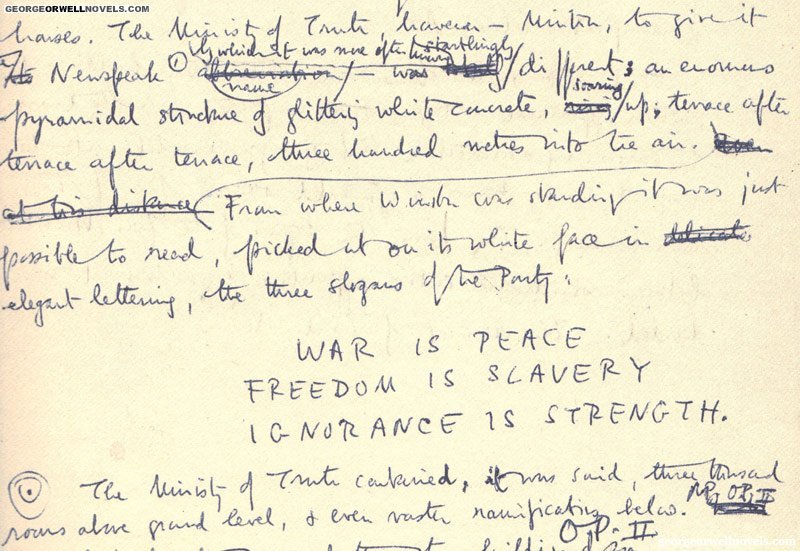 GEORGEORWELLNOVELS.COM
houses. The Ministry of Truth, however – Minitru, to give it
by which it was more often known startlingly
its Newspeak name – was different; an enormous
soaring
pyramidal structure of glittering white concrete, rising up, terrace after
terrace after terrace, three hundred metres into the air. Even
at this distance From where Winston was standing it was just
possible to read, picked out on its white face in delicate
elegant lettering, the three slogans of the Party:
WAR IS PEACE
FREEDOM IS SLAVERY
IGNORANCE IS STRENGTH.
The Ministry of Truth contained, it was said, three thousand
rooms above ground level, & even vaster ramifications below.
O.P. II
georgeorwellnovels.com